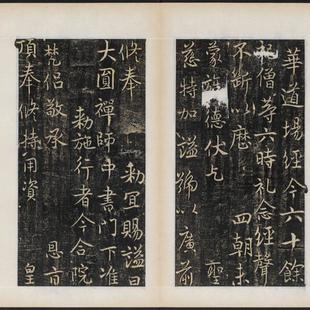 華道場經今六十餘
僧等六時礼念經聲
不斷以歷 四朝未
蒙旌德伏乞 聖
慈特加謚號以廣前
修奉 勑宜賜謚曰
大圓禪師中書門下准
勑施行者今合院
梵侣敬承 恩旨
頂奉修持用資 皇